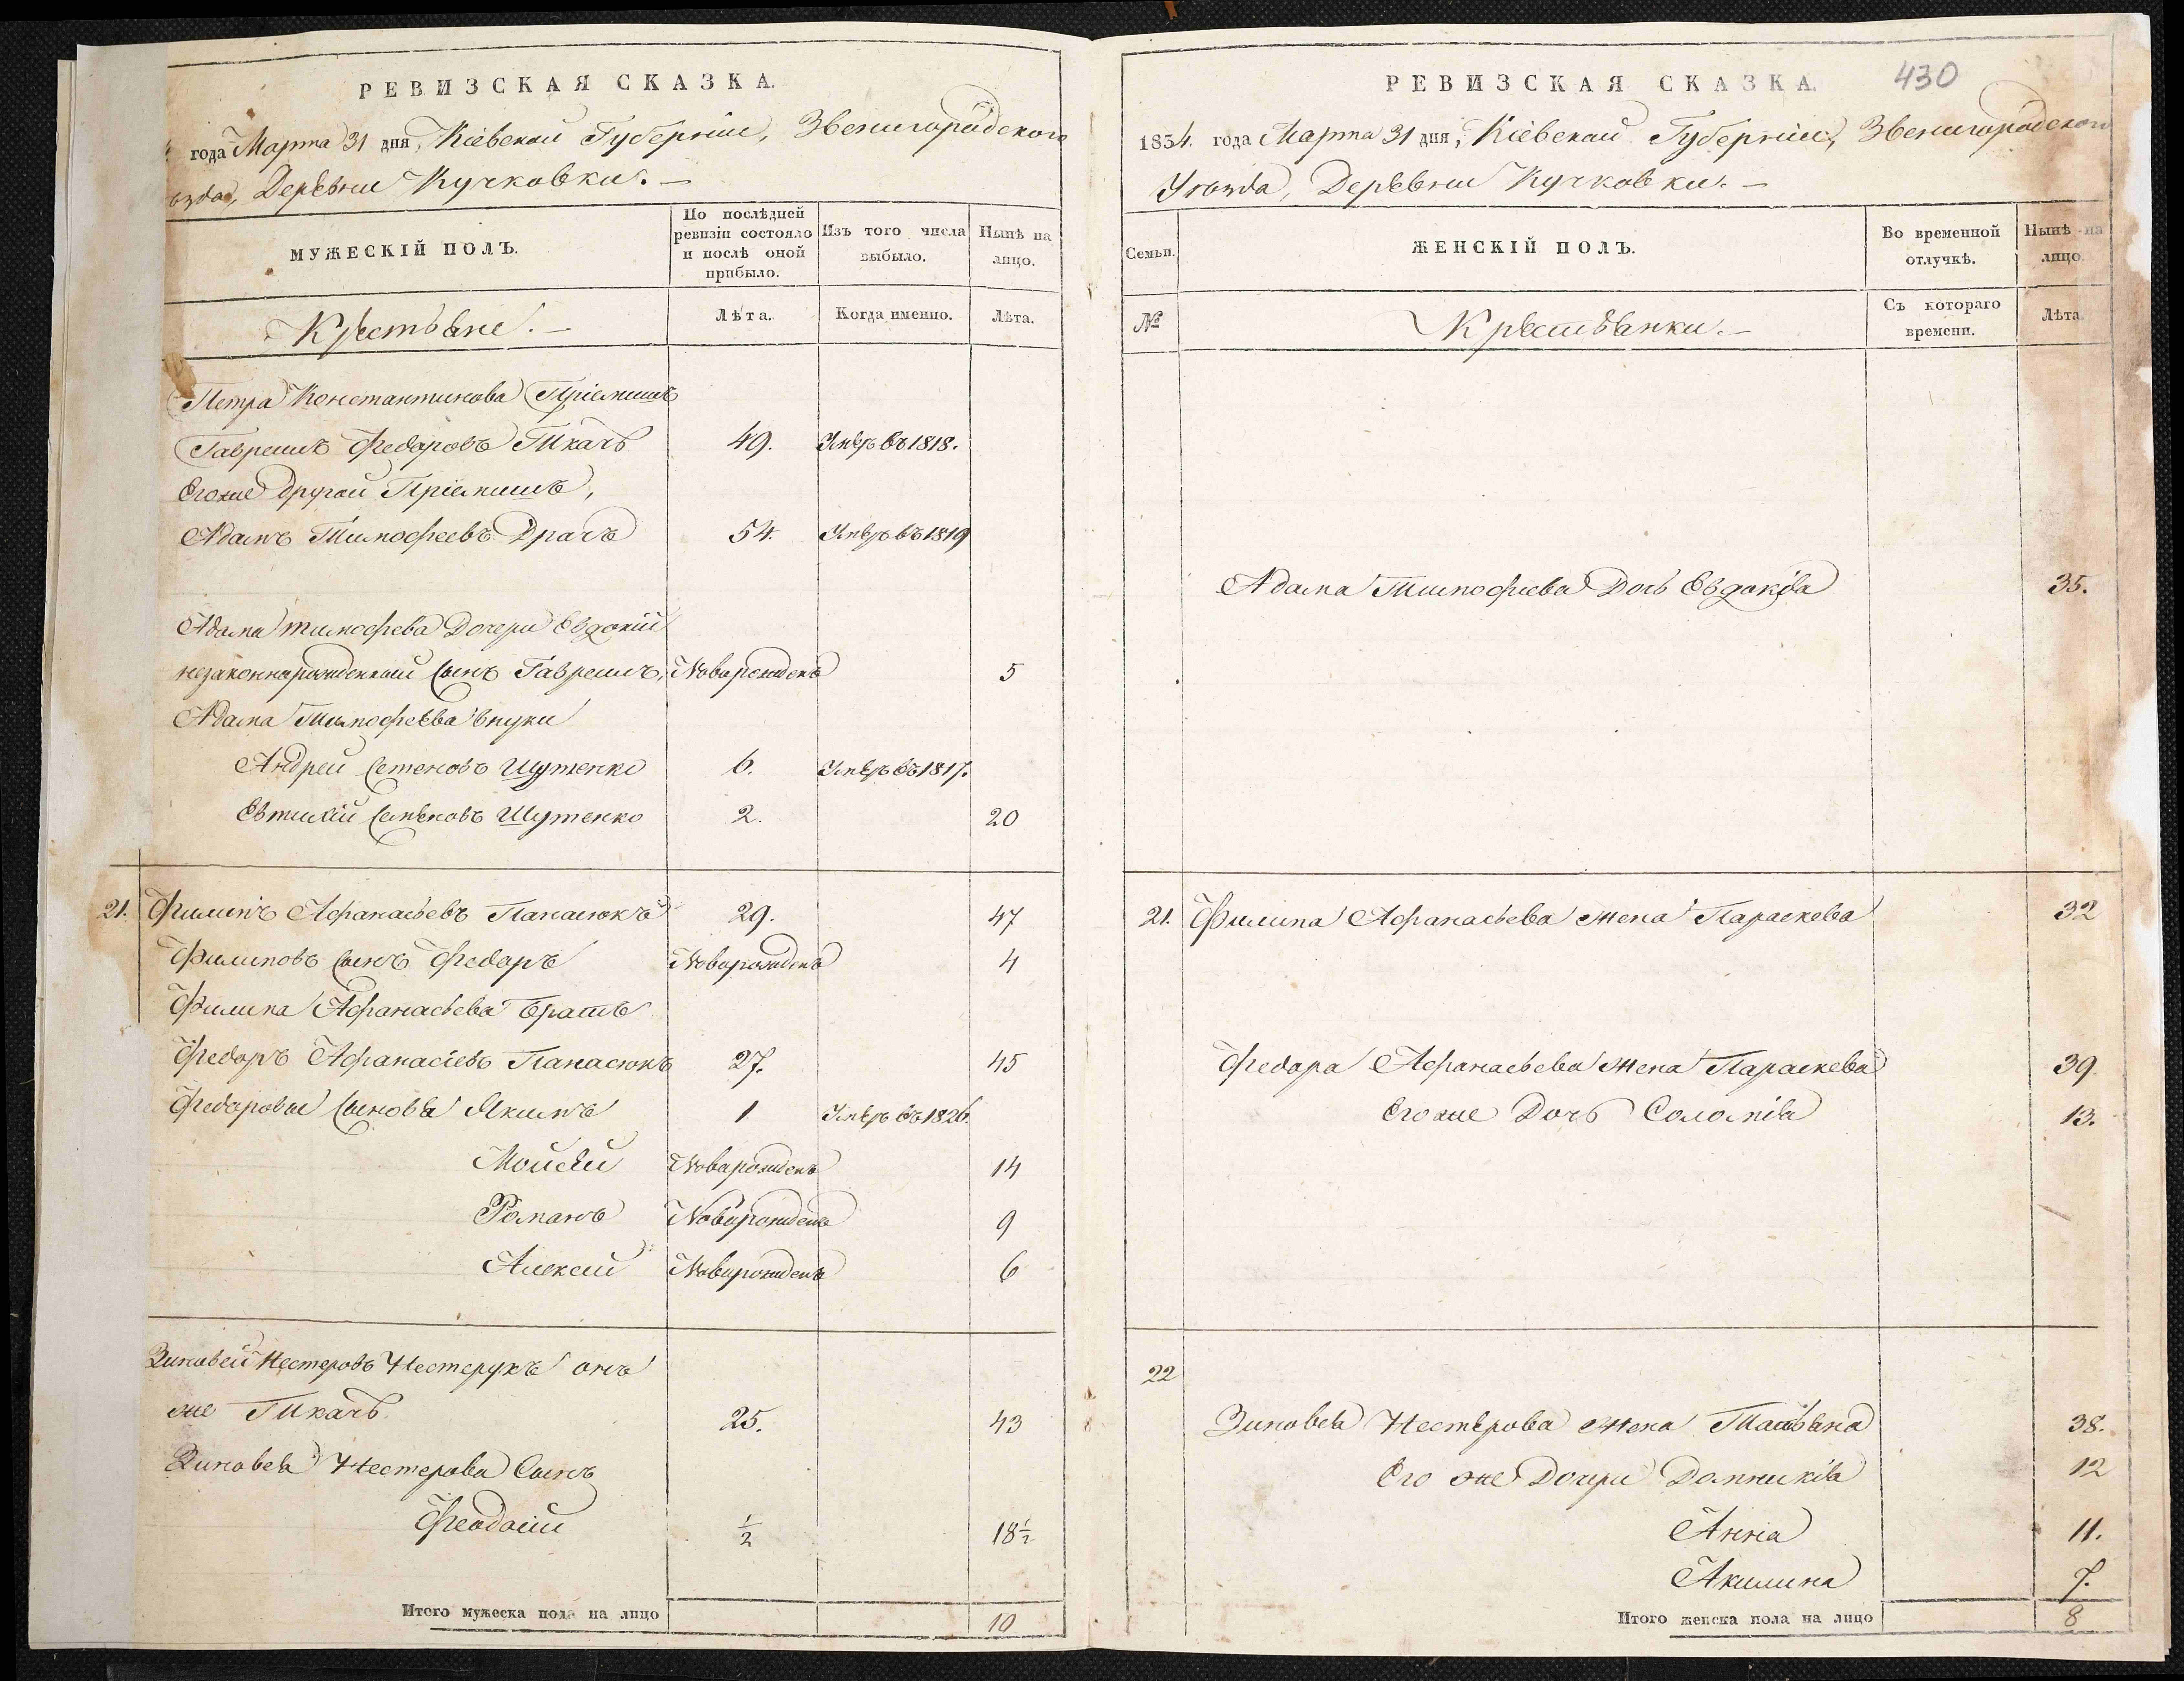 РЕВИЗСКАЯ СКАЗКА.
года Марта 31 дня, Кіевской Губерніи, Звенигородскаго
ѣзда, Деревни Кучковки. —
МУЖЕСКІЙ ПОЛЪ.
По послѣдней ревизіи состояло и послѣ оной прибыло.
Изъ того числа выбыло.
Нынѣ на лицо.
Крестьяне. —
Лѣта.
Когда именно.
Лѣта.
Петра Константинова Пріемишъ
Гавриилъ Федоровъ Ткачъ 49. Умеръ въ 1818.
Его же другой Пріемишъ,
Адамъ Тимофеевъ Драчъ 54. Умеръ въ 1819
Адама Тимофеева Дочери Евдокіи
незаконнорожденный сынъ Гавриилъ, Новорожденъ 5
Адама Тимофеева внуки
Андрей Семеновъ Шутенко 6. Умеръ въ 1817.
Евтихій Семеновъ Шутенко 2. 20
21. Филипъ Афанасьевъ Панасюкъ 29. 47
Филиповъ сынъ Федоръ Новорожденъ 4
Филипа Афанасьева Братъ
Федоръ Афанасіевъ Панасюкъ 27. 45
Федоровы сыновья Якимъ 1 Умеръ въ 1826.
Мойсей Новорожденъ 14
Романъ Новорожденъ 9
Алексей Новорожденъ 6
Зиновей Нестеровъ Нестерукъ онъ
же Ткачъ. 25. 43
Зиновея Нестерова Сынъ
Феодосій ½ 18½
Итого мужеска пола на лицо 10
430
РЕВИЗСКАЯ СКАЗКА.
1834. года Марта 31 дня, Кіевской Губерніи, Звенигородскаго
Уѣзда, Деревни Кучковки. —
Семьи.
ЖЕНСКІЙ ПОЛЪ.
Во временной отлучкѣ.
Нынѣ на лицо.
№
Крестьянки. —
Съ котораго времени.
Лѣта.
Адама Тимофеева Дочь Евдокія 35.
21. Филипа Афанасьева жена Параскева 32
Федора Афанасьева жена Параскева 39
Его же Дочь Соломія 13.
22
Зиновея Нестерова жена Татьяна 38.
Его же Дочери Домникія 12
Анна 11.
Акилина 7.
Итого женска пола на лицо 8